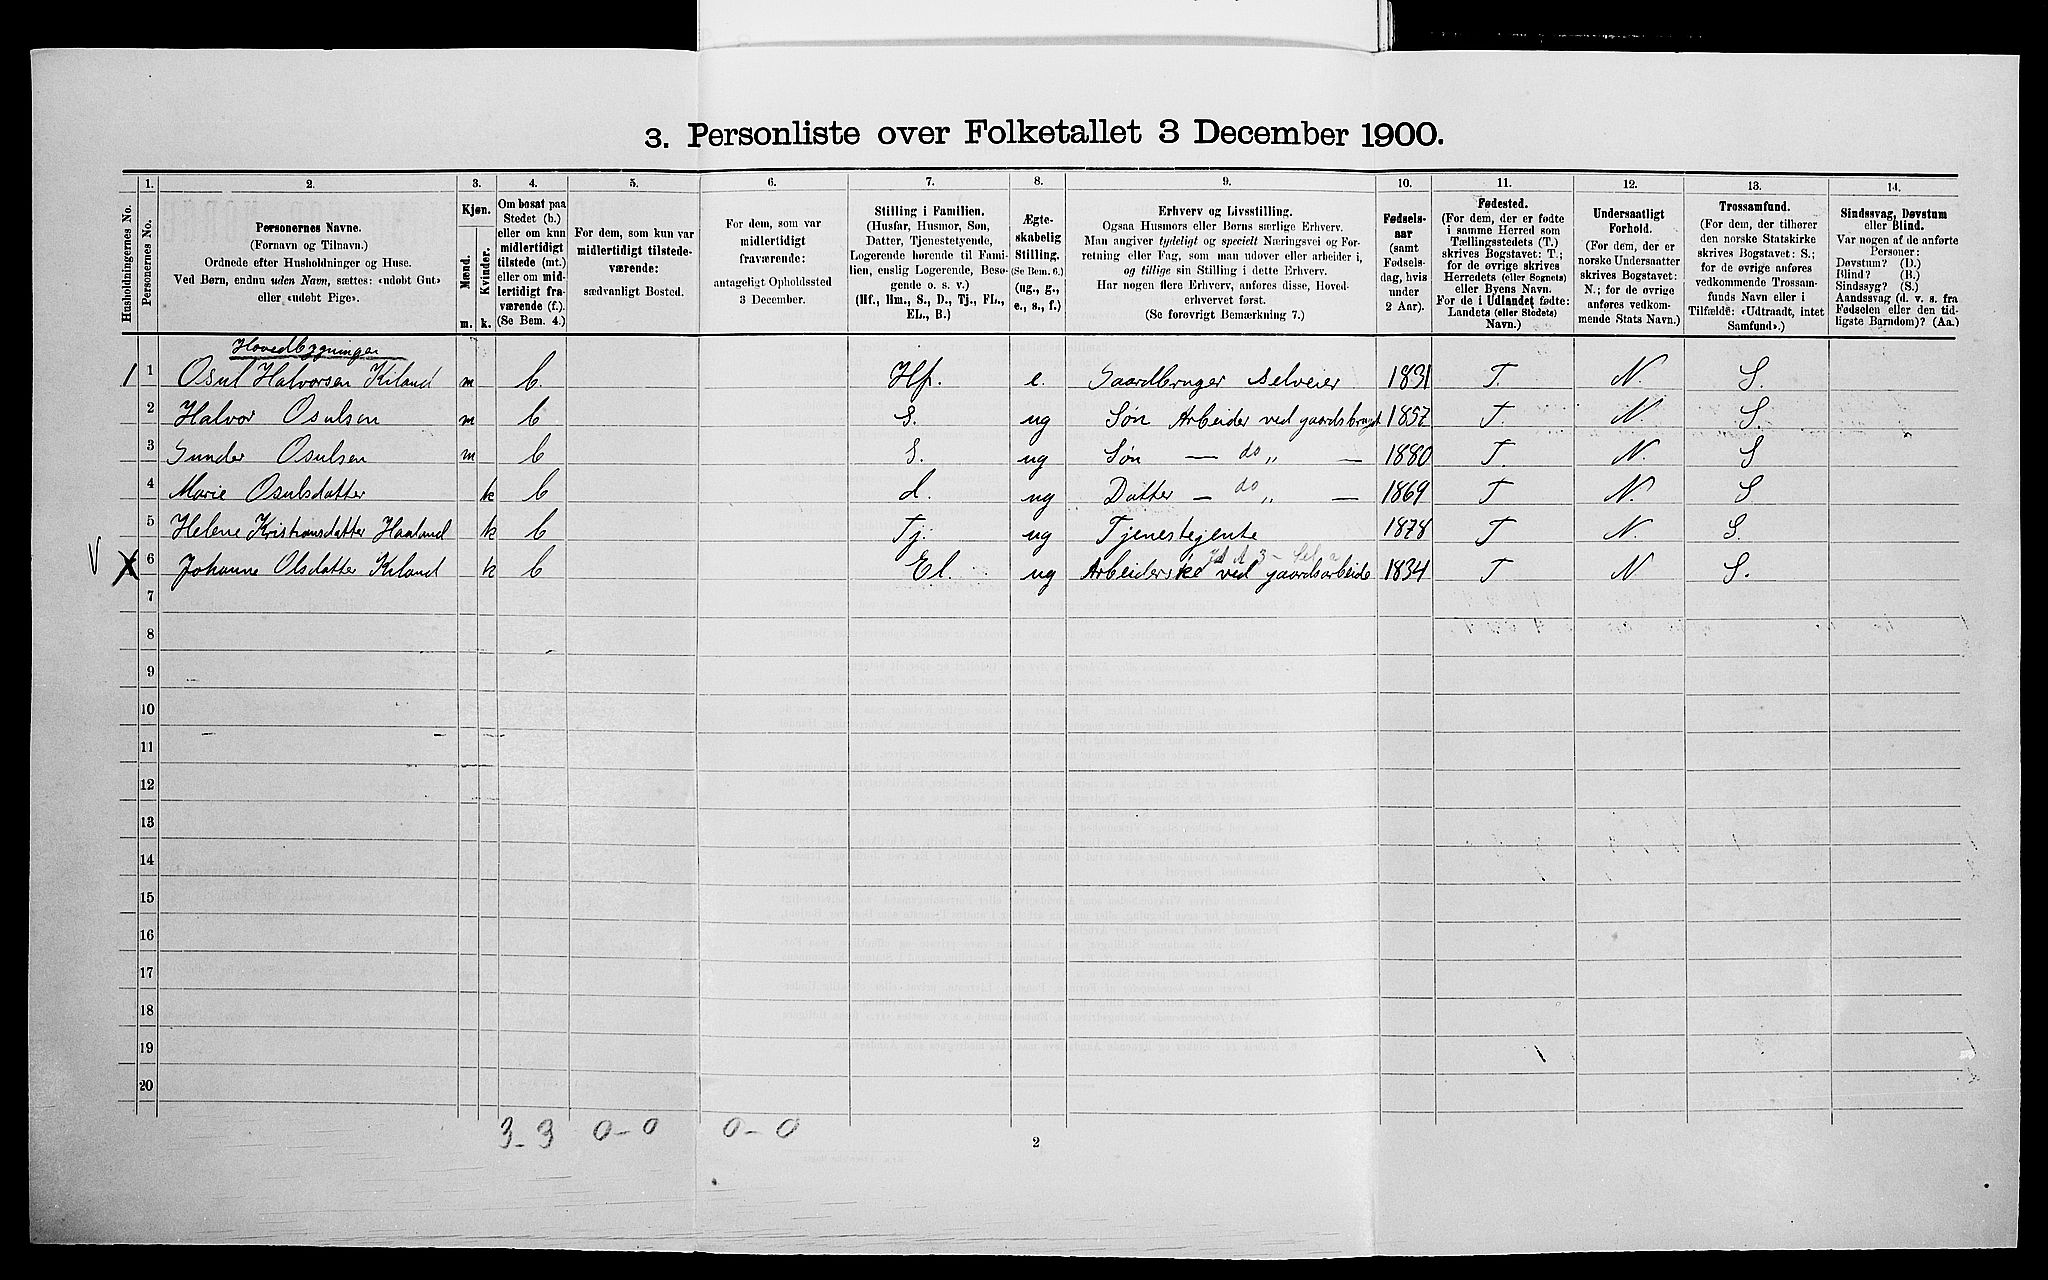 3. Personliste over Folketallet 3 December 1900.
Husholdningernes No.
1.
Personernes No.
2.
Personernes Navne.
(Fornavn og Tilnavn.)
Ordnede efter Husholdninger og Huse.
Ved Børn, endnu uden Navn, sættes: «udøbt Gut»
eller «udøbt Pige».
3.
Kjøn.
Mænd.
Kvinder.
m. k.
4.
Om bosat paa
Stedet (b.)
eller om kun
midlertidigt
tilstede (mt.)
eller om mid-
lertidigt fra-
værende (f.).
(Se Bem. 4.)
5.
For dem, som kun var
midlertidigt tilstede-
værende:
sædvanligt Bosted.
6.
For dem, som var
midlertidigt
fraværende:
antageligt Opholdssted
3 December.
7.
Stilling i Familien.
(Husfar, Husmor, Søn,
Datter, Tjenestetyende,
Logerende hørende til Fami-
lien, enslig Logerende, Besø-
gende o. s. v.)
(Hf., Hm., S., D., Tj., FL.,
EL., B.)
8.
Ægte-
skabelig
Stilling.
(Se Bem. 6.)
(ug., g.,
e., s., f.)
9.
Erhverv og Livsstilling.
Ogsaa Husmors eller Børns særlige Erhverv.
Man angiver tydeligt og specielt Næringsvei og For-
retning eller Fag, som man udøver eller arbeider i,
og tillige sin Stilling i dette Erhverv.
Har nogen flere Erhverv, anføres disse, Hoved-
erhvervet først.
(Se forøvrigt Bemærkning 7.)
10.
Fødsels-
aar
(samt
Fødsels-
dag, hvis
under
2 Aar).
11.
Fødested.
(For dem, der er fødte
i samme Herred som
Tællingsstedets (T.)
skrives Bogstavet: T.;
for de øvrige skrives
Herredets (eller Sognets)
eller Byens Navn.
For de i Udlandet fødte:
Landets (eller Stedets)
Navn.)
12.
Undersaatligt
Forhold.
(For dem, der er
norske Undersaatter
skrives Bogstavet:
N.; for de øvrige
anføres vedkom-
mende Stats Navn.)
13.
Trossamfund.
(For dem, der tilhører
den norske Statskirke
skrives Bogstavet: S.;
for de øvrige anføres
vedkommende Trossam-
funds Navn eller i
Tilfælde: «Udtraadt, intet
Samfund».)
14.
Sindssvag, Døvstum
eller Blind.
Var nogen af de anførte
Personer:
Døvstum? (D.)
Blind? (B.)
Sindssyg? (S.)
Aandssvag (d. v. s. fra
Fødselen eller den tid-
ligste Barndom)? (Aa.)
Hovedbygningen
1 1 Osul Halvorsen Kiland m b. Hf. e. Gaardbruger selveier 1831 T. N. S.
2 Halvor Osulsen m b S. ug Søn Arbeider ved gaardsbruget 1857 T. N. S.
3 Gunder Osulsen m b S. ug Søn — do „ — 1880 T. N. S
4 Marie Osulsdatter k b d. ug Datter — do „ — 1869 T N. S
5 Helene Kristiansdatter Haaland k b Tj. ug Tjenestejente 1878 T N. S.
V X 6 Johanne Olsdatter Kiland k b El. ug Arbeiderske ved gaardsarbeide 1834 T N S.
7
8
9
10
11
12
13
14
15
16
17
18
19
20
3-3 0-0 0-0
2